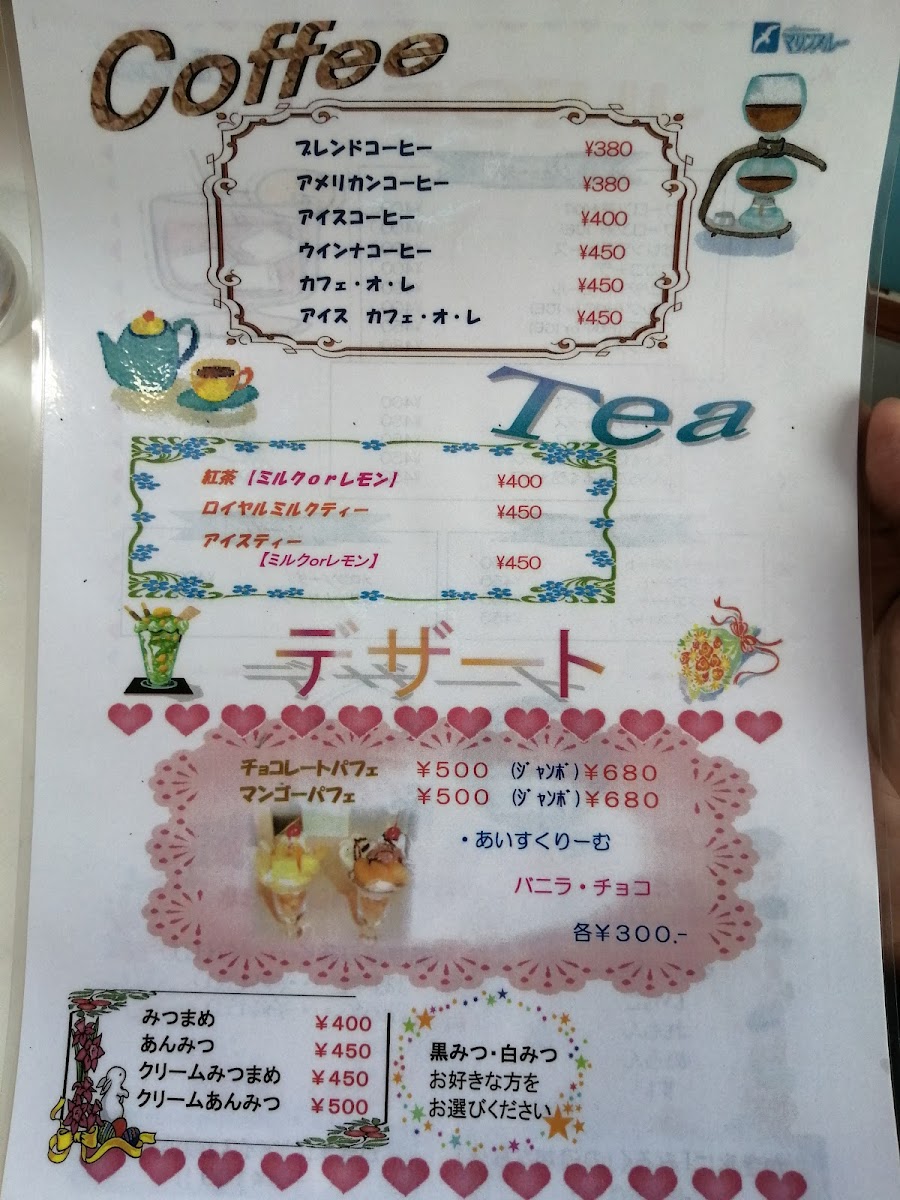 Coffee
マリンブルー
ブレンドコーヒー ¥380
アメリカンコーヒー ¥380
アイスコーヒー ¥400
ウインナコーヒー ¥450
カフェ・オ・レ ¥450
アイス カフェ・オ・レ ¥450
Tea
紅茶【ミルクorレモン】 ¥400
ロイヤルミルクティー ¥450
アイスティー
【ミルクorレモン】 ¥450
デザート
チョコレートパフェ ¥500 (ジャンボ)¥680
マンゴーパフェ ¥500 (ジャンボ)¥680
・あいすくりーむ
バニラ・チョコ
各¥300.-
みつまめ ¥400
あんみつ ¥450
クリームみつまめ ¥450
クリームあんみつ ¥500
黒みつ・白みつ
お好きな方を
お選びください